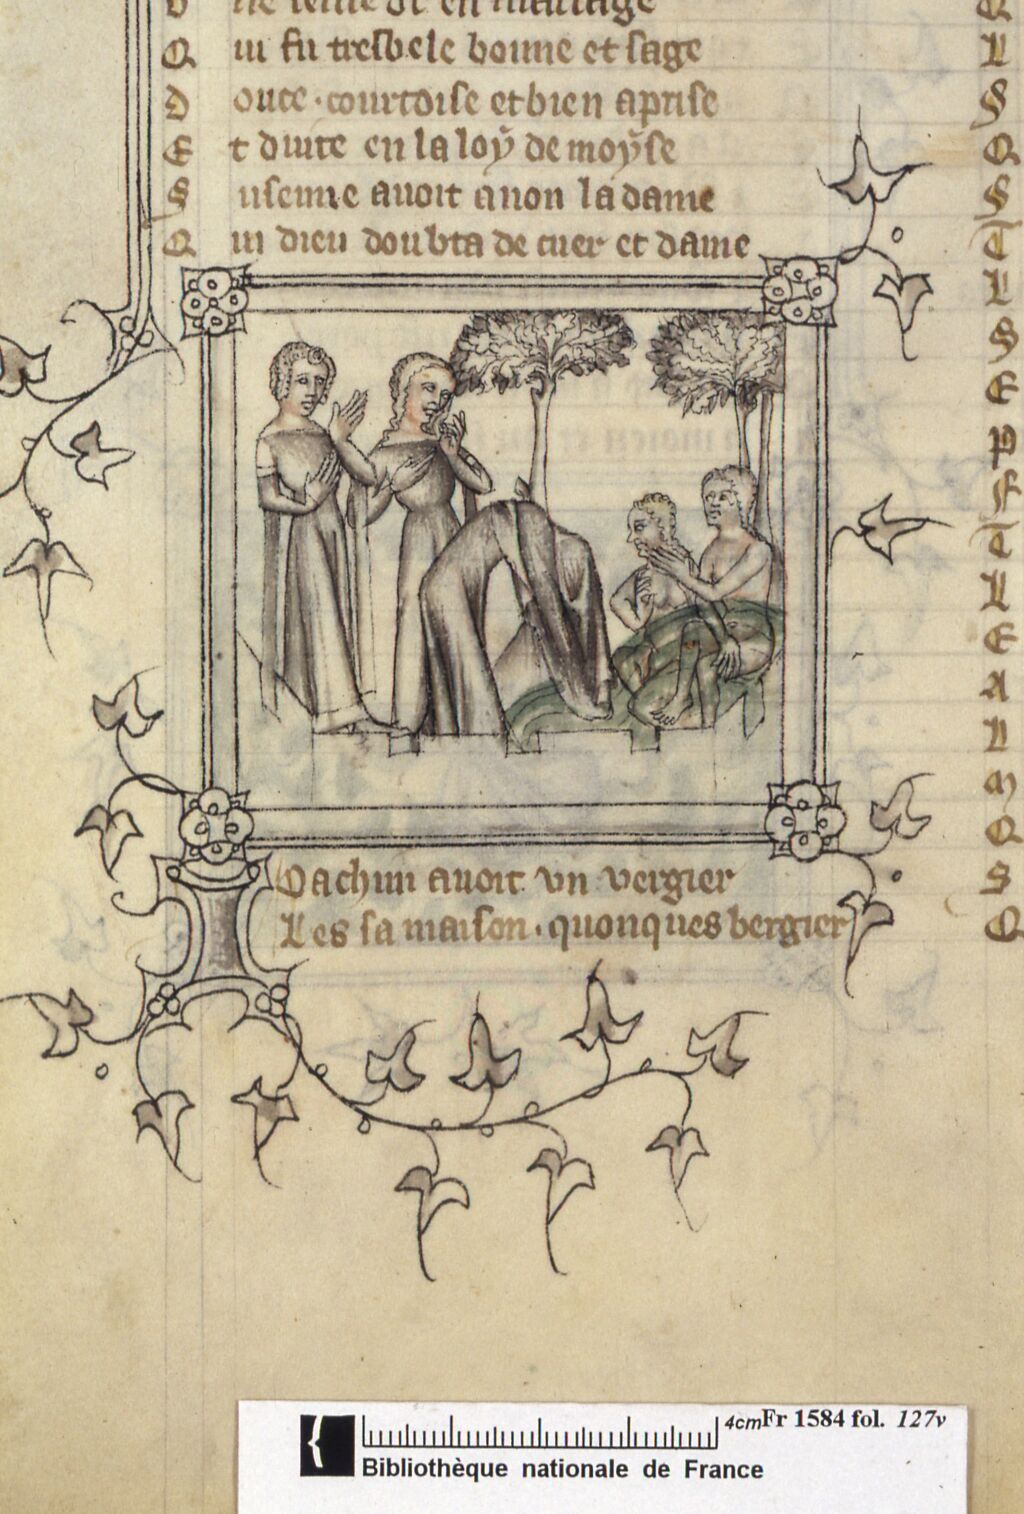 Q ui fu tresbele bonne et sage
D ouce · courtoise et bien aprise
E t duite en la loy de moyse
S usenne avoit a non la dame
Q ui dieu doubta de cuer et dame
Joachim avoit un vergier
Les sa maison · quonques bergier
Q
L
S
Q
S
T
L
S
E
P
S
T
L
E
A
L
M
Q
S
Q
4cm Fr 1584 fol. 127v
Bibliothèque nationale de France